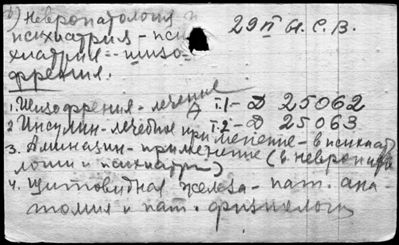 б) Невропатология и 29 П Н.С.В.
психиатрия - пси
хиатрия - шизо-
френия.
1. Шизофрения - лечение т.1 - Д 25062
2 Инсулин - лечебное применение т.2 - Д 25063
3. Аминазин - применение - в психиат
(в невропато
логии и психиатрии)
4. щитовидная железа - пат. ана
томия и пат. физиология